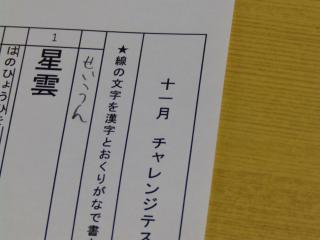 十一月 チャレンジテス
★線の文字を漢字とおくりがなで書
1
せいうん
星雲
はのひょうひ